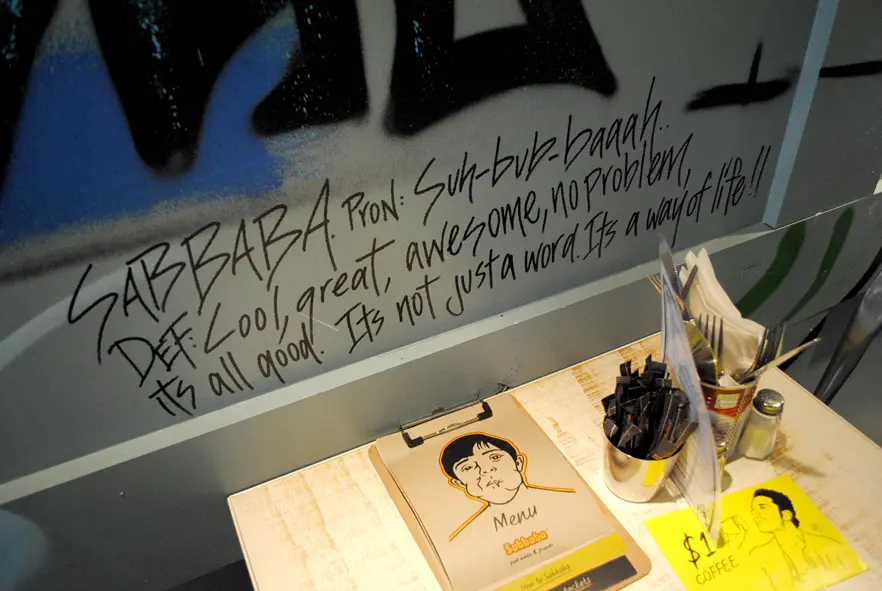 SABBABA. PRON: Suh-bub-baaah..
DEF: Cool, great, awesome, no problem,
it's all good. It's not just a word. It's a way of life!!
Menu
Sabbaba
How to Sabbaba
$1
COFFEE